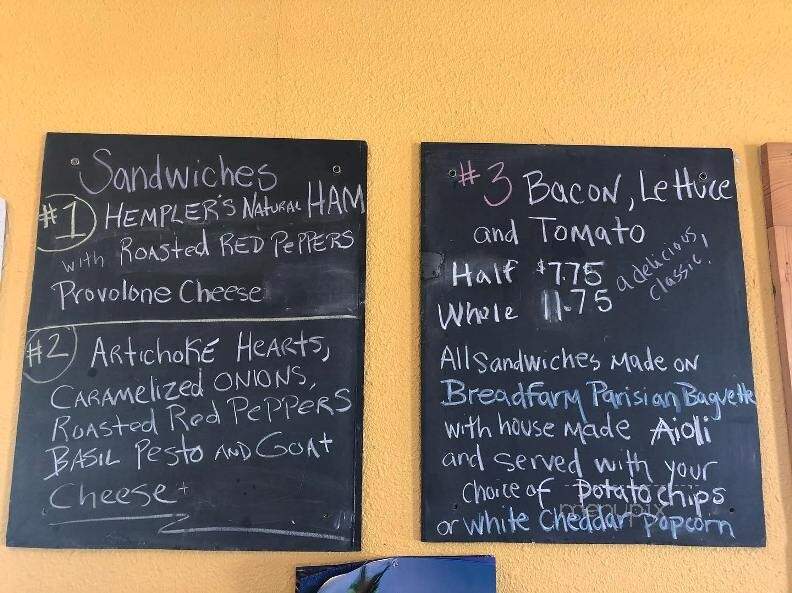 Sandwiches
#1 HEMPLER'S NATURAL HAM
with Roasted RED PEPPERS
Provolone Cheese
#2 ARtichoKE HEARTS,
CARAMelized ONIONS,
Roasted Red PePPERS
BASIL Pesto AND GOAt
Cheese
#3 BACON, Lettuce
and Tomato
Half $7.75
Whole 11.75
a delicious,
classic!
All Sandwiches Made on
Breadfarm Parisian Baguette
with house Made Aioli
and served with your
choice of Potato chips
or White Cheddar Popcorn
menupix